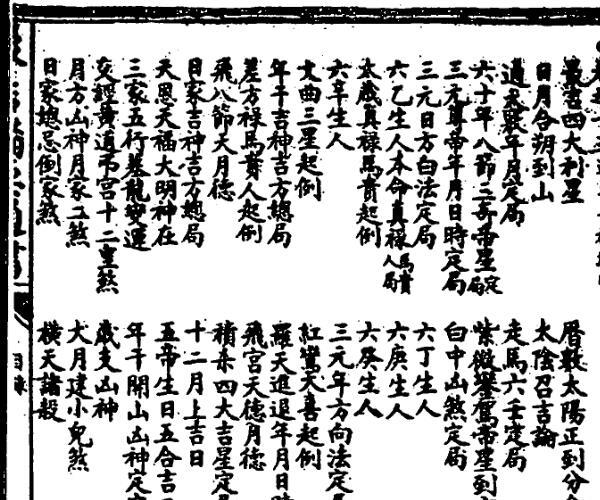 四大利星
日月合朔到山
通天竅年月定局
六十年八節三奇帝星定局
三元尊帝年月日時定局
三元日方白法定局
六乙生人本命真祿馬貴人局
太歲真祿馬貴起例
六辛生人
文曲三星起例
年干吉神吉方總局
差方祿馬貴人起例
飛八節大月德
日家吉神吉方總局
天恩天福大明神在
三家五行墓龍變運
交經黃道弔宮十二重煞
月方凶神月家凶煞
日家總忌倒家煞
曆數太陽正到分
太陰召吉論
走馬六壬定局
紫微鑾駕帝星到
白中凶煞定局
六丁生人
六庚生人
六癸生人
三元年方向法定
紅鸞天喜起例
羅天進退年月日時
飛宮天德月德
積禾四大吉星定
十二月上吉日
五帝生日五合吉
年干開山凶神定
歲支凶神
大月建小兒煞
橫天諸殺
目錄